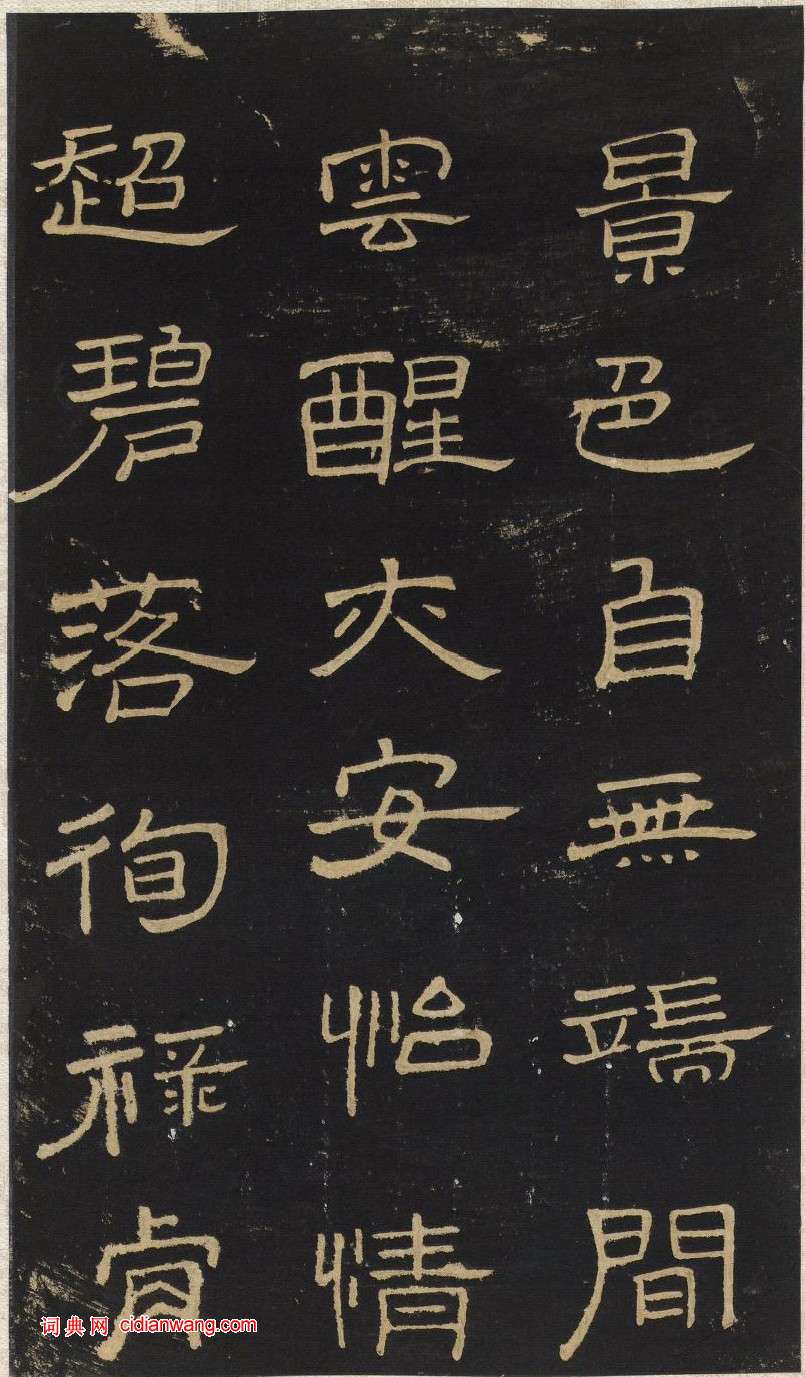 景色自無端間
雲醒夾安怡情
超碧落徇祿貞
词典网 cidianwang.com